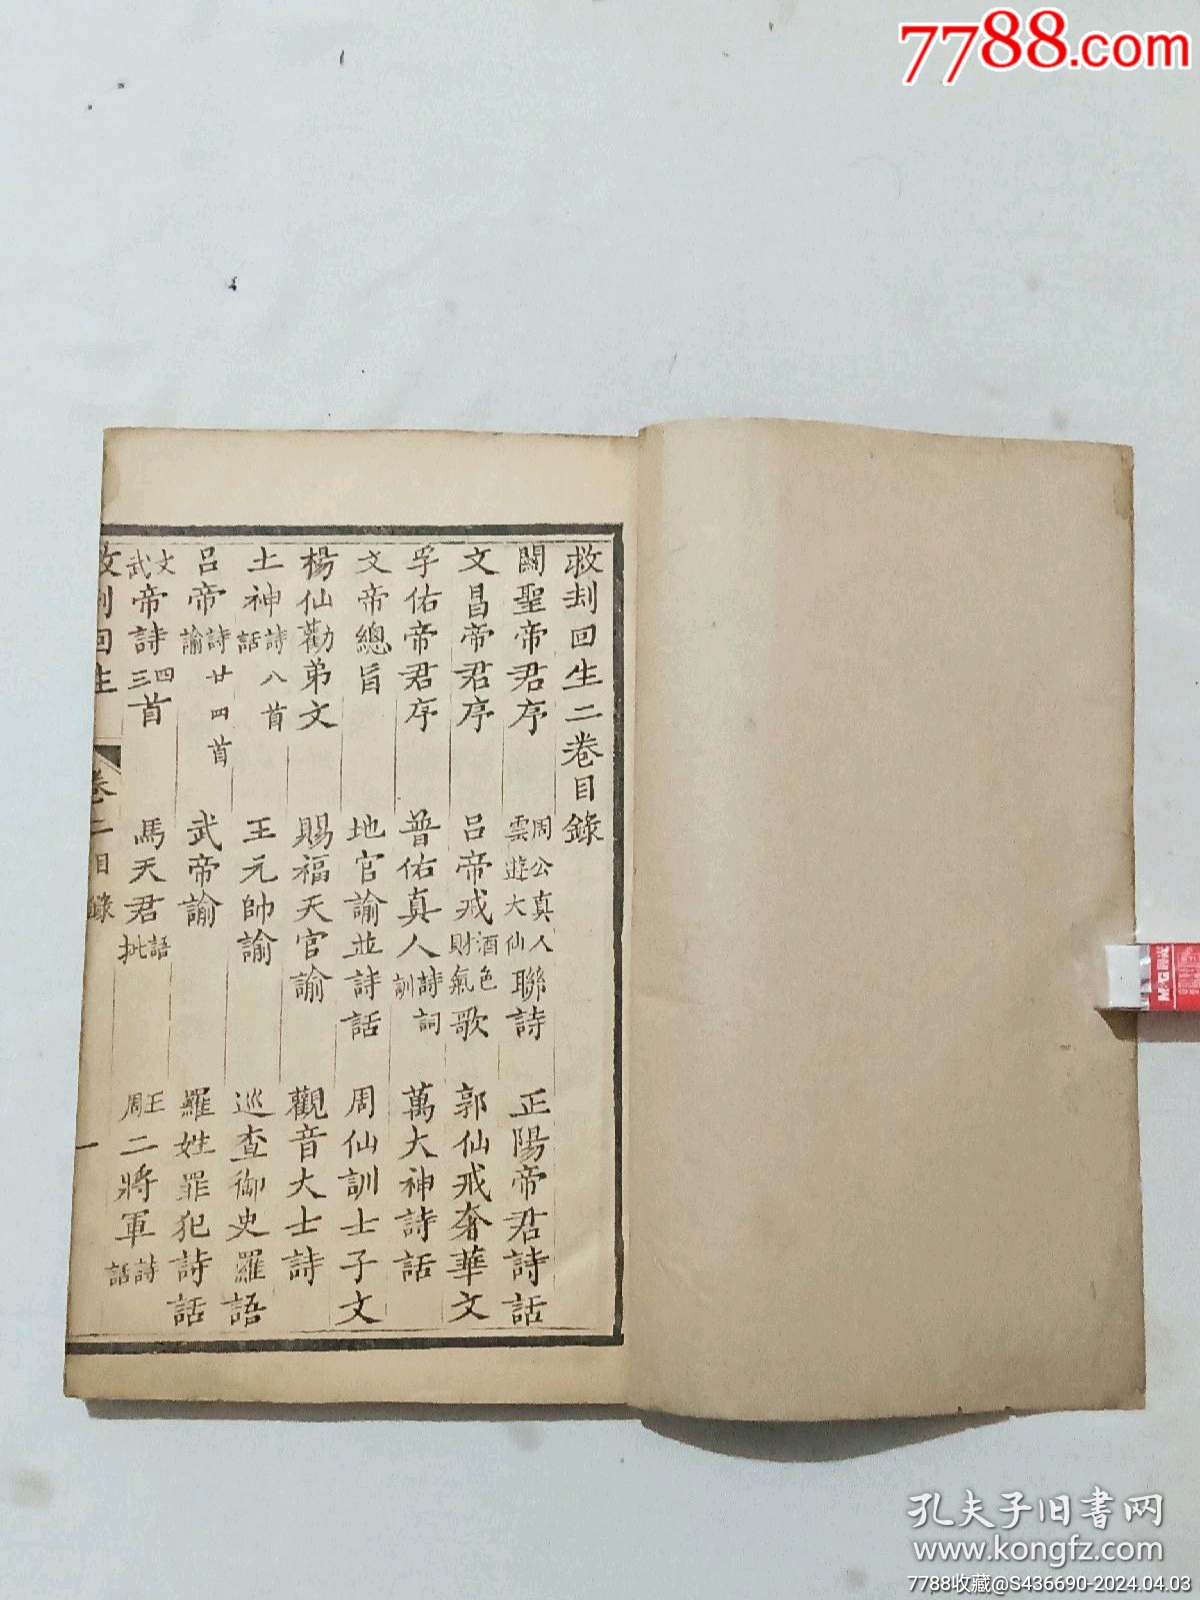 7788.com
救刦回生二卷目錄
關聖帝君序 周公真人雲遊大仙聯詩 正陽帝君詩話
文昌帝君序 呂帝戒酒色財氣歌 郭仙戒奢華文
孚佑帝君序 普佑真人詩詞訓 萬大神詩話
文帝總旨 地官諭並詩話 周仙訓士子文
楊仙勸弟文 賜福天官諭 觀音大士詩
土神詩八首話 王元帥諭 巡查御史羅語
呂帝詩廿四首諭 武帝諭 羅姓罪犯詩話
文武帝詩四三首 馬天君語批 王周二將軍詩話
救刦回生 卷二目錄 一
M&G晨光
孔夫子旧书网
www.kongfz.com
7788收藏@S436690-2024.04.03